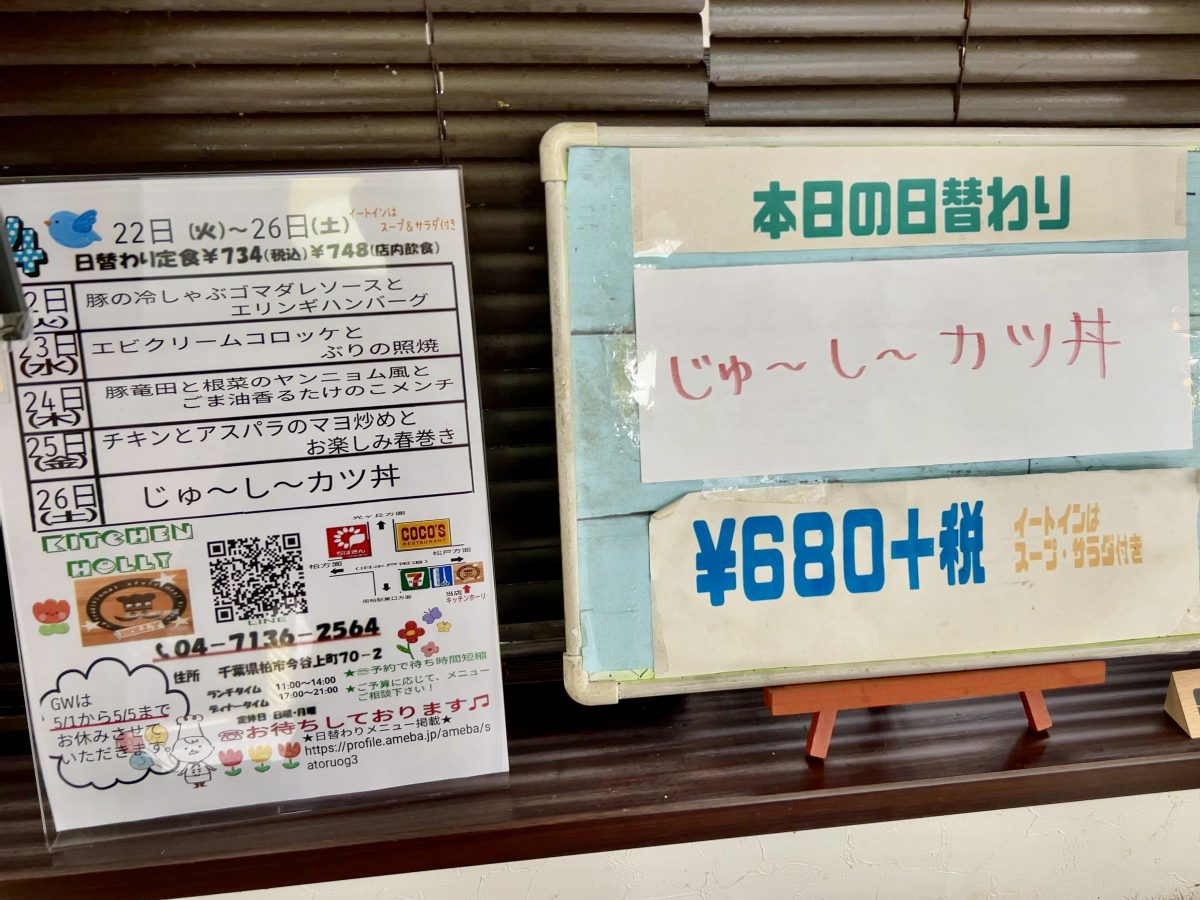 4
22日(火)～26日(土)
イートインは
スープ&サラダ付き
日替わり定食￥734(税込)￥748(店内飲食)
2日
(火)
豚の冷しゃぶゴマダレソースと
エリンギハンバーグ
23日
(水)
エビクリームコロッケと
ぶりの照焼
24日
(木)
豚竜田と根菜のヤンニョム風と
ごま油香るたけのこメンチ
25日
(金)
チキンとアスパラのマヨ炒めと
お楽しみ春巻き
26日
(土)
じゅ～し～カツ丼
KITCHEN
HOLLY
LINE
光ヶ丘方面
COCO'S
RESTAURANT
柏方面
(旧水戸街道)
松戸方面
南柏駅東口方面
当店
キッチンホーリー
04-7136-2564
住所 千葉県柏市今谷上町70-2
ランチタイム 11:00～14:00
ディナータイム 17:00～21:00
定休日 日曜・月曜
★ご予約で待ち時間短縮
★ご予算に応じて、メニュー
ご相談下さい！
GWは
5/1から5/5まで
お休みさせて
いただきます。
☎お待ちしております♫
★日替わりメニュー掲載★
https://profile.ameba.jp/ameba/s
atoruog3
本日の日替わり
じゅ～し～カツ丼
￥680+税
イートインは
スープ・サラダ付き